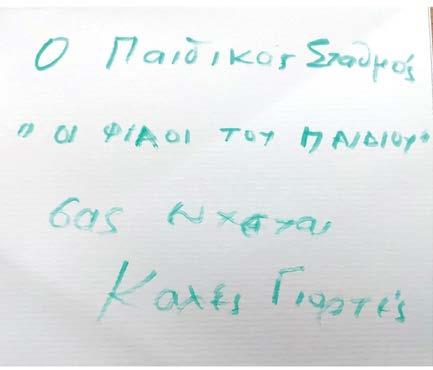 Ο Παιδικος Σταθμός
"ΟΙ ΦΙΛΟΙ ΤΟΥ ΠΑΙΔΙΟΥ"
σας
Καλές Γιορτές